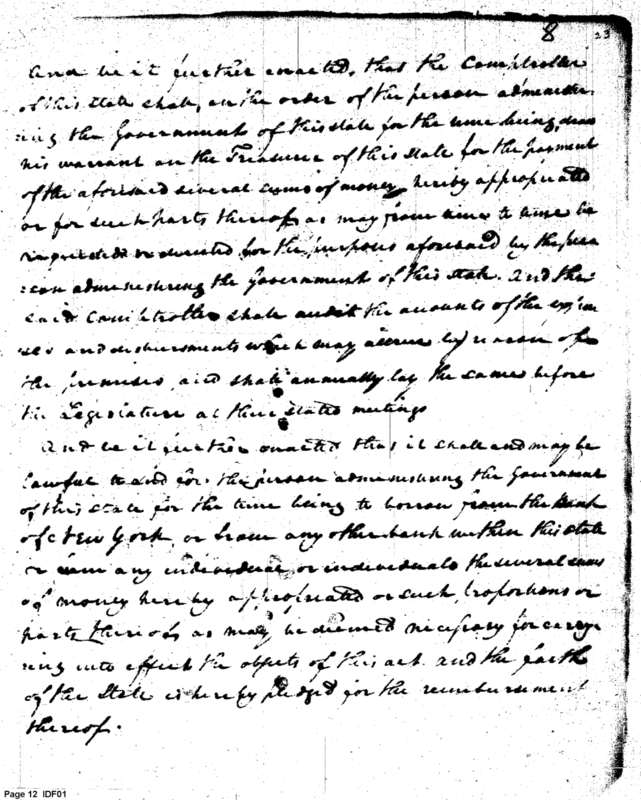 8 23
And be it further enacted, that the Comptroller
of this State shall, on the order of the person adminester-
ing the Government of this state for the time being, draw
his warrant on the Treasurer of this State for the payment
of the aforesaid several sums of money, hereby appropriated
or for such parts thereof as may from time to time be
required or directed for the purposes aforesaid by the per
son adminestring the Government of this state. And the
said Comptroller shall audit the accounts of the expen
ses and disbursments which may accrue by reason of
the premises, and shall annually lay the same before
the Legislature at their stated meetings
And be it further enacted that it shall and may be
lawful to and for the person adminestring the Government
of this state for the time being to borrow from the Bank
of New York, or from any other bank within this state
or from any individual or individuals the several sums
of money hereby appropriated or such proportions or
parts thereof as may be deemed necessary for carry-
ing into effect the objects of this act and the faith
of the State is hereby pledged for the reimbursement
thereof.
Page 12 IDF01